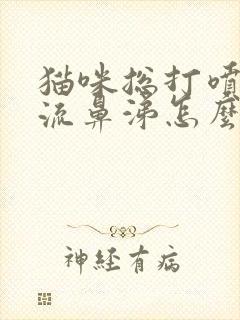 猫咪总打喷
流鼻涕怎麼
神經有病